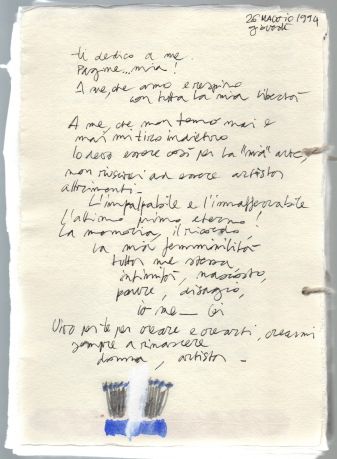 26 MAGGIO 1994
giovedì
ti dedico a me.
Pagine... mia!
A me, che amo e respiro
con tutta la mia libertà
A me, che non temo mai e
mai mi tiro indietro
Io devo essere così per la "mia" arte,
non riuscirei ad essere artista
altrimenti -
L'impalpabile e l'inafferrabile
L'attimo primo eterno!
La memoria, il ricordo!
La mia femminilità
tutta me stessa
intimità, nascosto,
paure, disagio,
io me — lei
Vivo per te per creare e crearti, crearmi
sempre a rinascere
donna, artista -